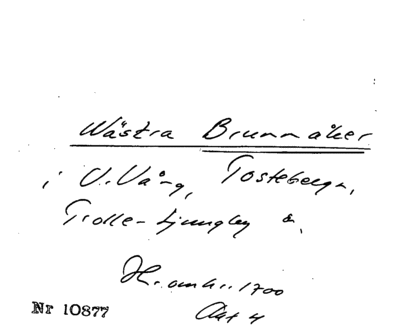 Wästra Brunnmåker
i V. Vång, Tosteberga,
Trolle-Ljungby &.
Hr. omkr. 1700
Akt 4
Nr 10877